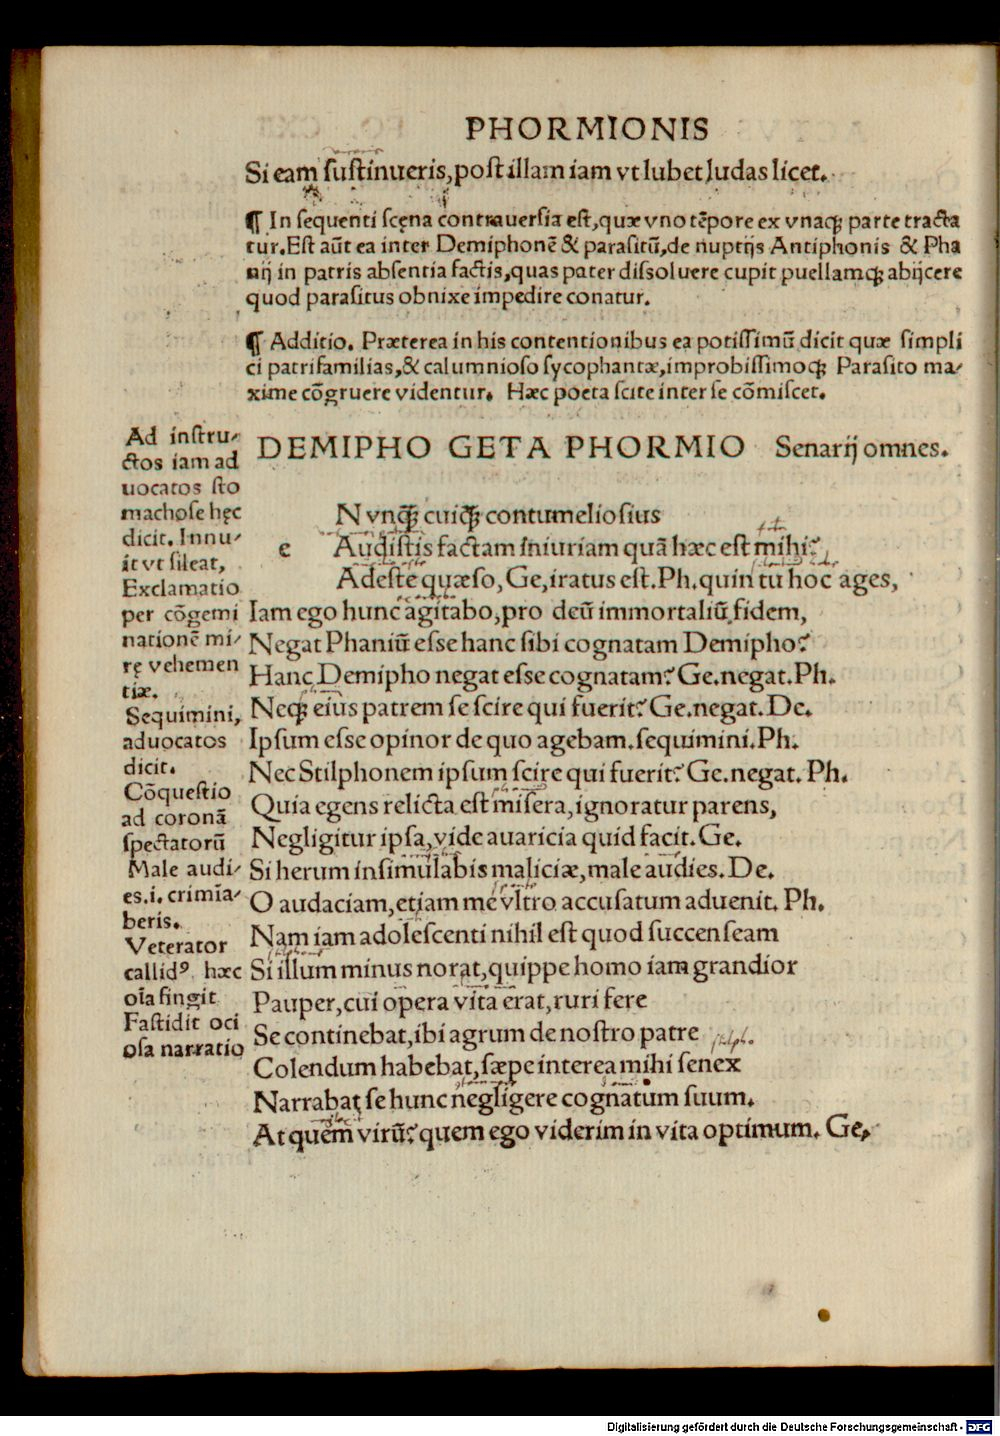 PHORMIONIS
Si eam ſuſtinueris, poſt illam iam vt lubet ludas licet.
¶ In ſequenti ſcęna controuerſia eſt, quæ vno tẽpore ex vnaqꝫ parte tracta
tur. Eſt aũt ea inter Demiphonẽ & paraſitũ, de nuptijs Antiphonis & Pha
nij in patris abſentia factis, quas pater diſſoluere cupit puellamqꝫ abijcere
quod paraſitus obnixe impedire conatur.
¶ Additio. Præterea in his contentionibus ea potiſſimũ dicit quæ ſimpli
ci patrifamilias, & calumnioſo ſycophantæ, improbiſſimoqꝫ Paraſito ma⸗
xime cõgruere videntur. Hæc poeta ſcite inter ſe cõmiſcet.
Ad inſtru⸗
ctos iam ad
uocatos ſto
machoſe hęc
dicit. Innu⸗
it vt ſileat,
Exclamatio
per cõgemi
nationẽ mi⸗
rę vehemen
tiæ.
Sequimini,
aduocatos
dicit.
Cõqueſtio
ad coronã
ſpectatorũ
Male audi⸗
es .i. crimĩa⸗
beris.
Veterator
callidꝰ hæc
oĩa fingit
Faſtidit oci
oſa narratio
DEMIPHO GETA PHORMIO Senarij omnes.
N vnqꝫ̃ cuiqꝫ̃ contumelioſius
e Audiſtis factam iniuriam quã hæc eſt mihi?
Adeſte quæſo, Ge, iratus eſt. Ph. quin tu hoc ages,
Iam ego hunc agitabo, pro deũ immortaliũ fidem,
Negat Phaniũ eſſe hanc ſibi cognatam Demipho?
Hanc Demipho negat eſſe cognatam? Ge. negat. Ph.
Neqꝫ eius patrem ſe ſcire qui fuerit? Ge. negat. De.
Ipſum eſſe opinor de quo agebam. ſequimini. Ph.
Nec Stilphonem ipſum ſcire qui fuerit? Ge. negat. Ph.
Quia egens relicta eſt miſera, ignoratur parens,
Negligitur ipſa, vide auaricia quid facit. Ge.
Si herum inſimulabis maliciæ, male audies. De.
O audaciam, etiam me vltro accuſatum aduenit. Ph.
Nam iam adoleſcenti nihil eſt quod ſuccenſeam
Si illum minus norat, quippe homo iam grandior
Pauper, cui opera vita erat, ruri fere
Se continebat, ibi agrum de noſtro patre
Colendum habebat, ſæpe interea mihi ſenex
Narrabat ſe hunc negligere cognatum ſuum.
At quem virũ? quem ego viderim in vita optimum. Ge,
Digitalisierung gefördert durch die Deutsche Forschungsgemeinschaft - DFG